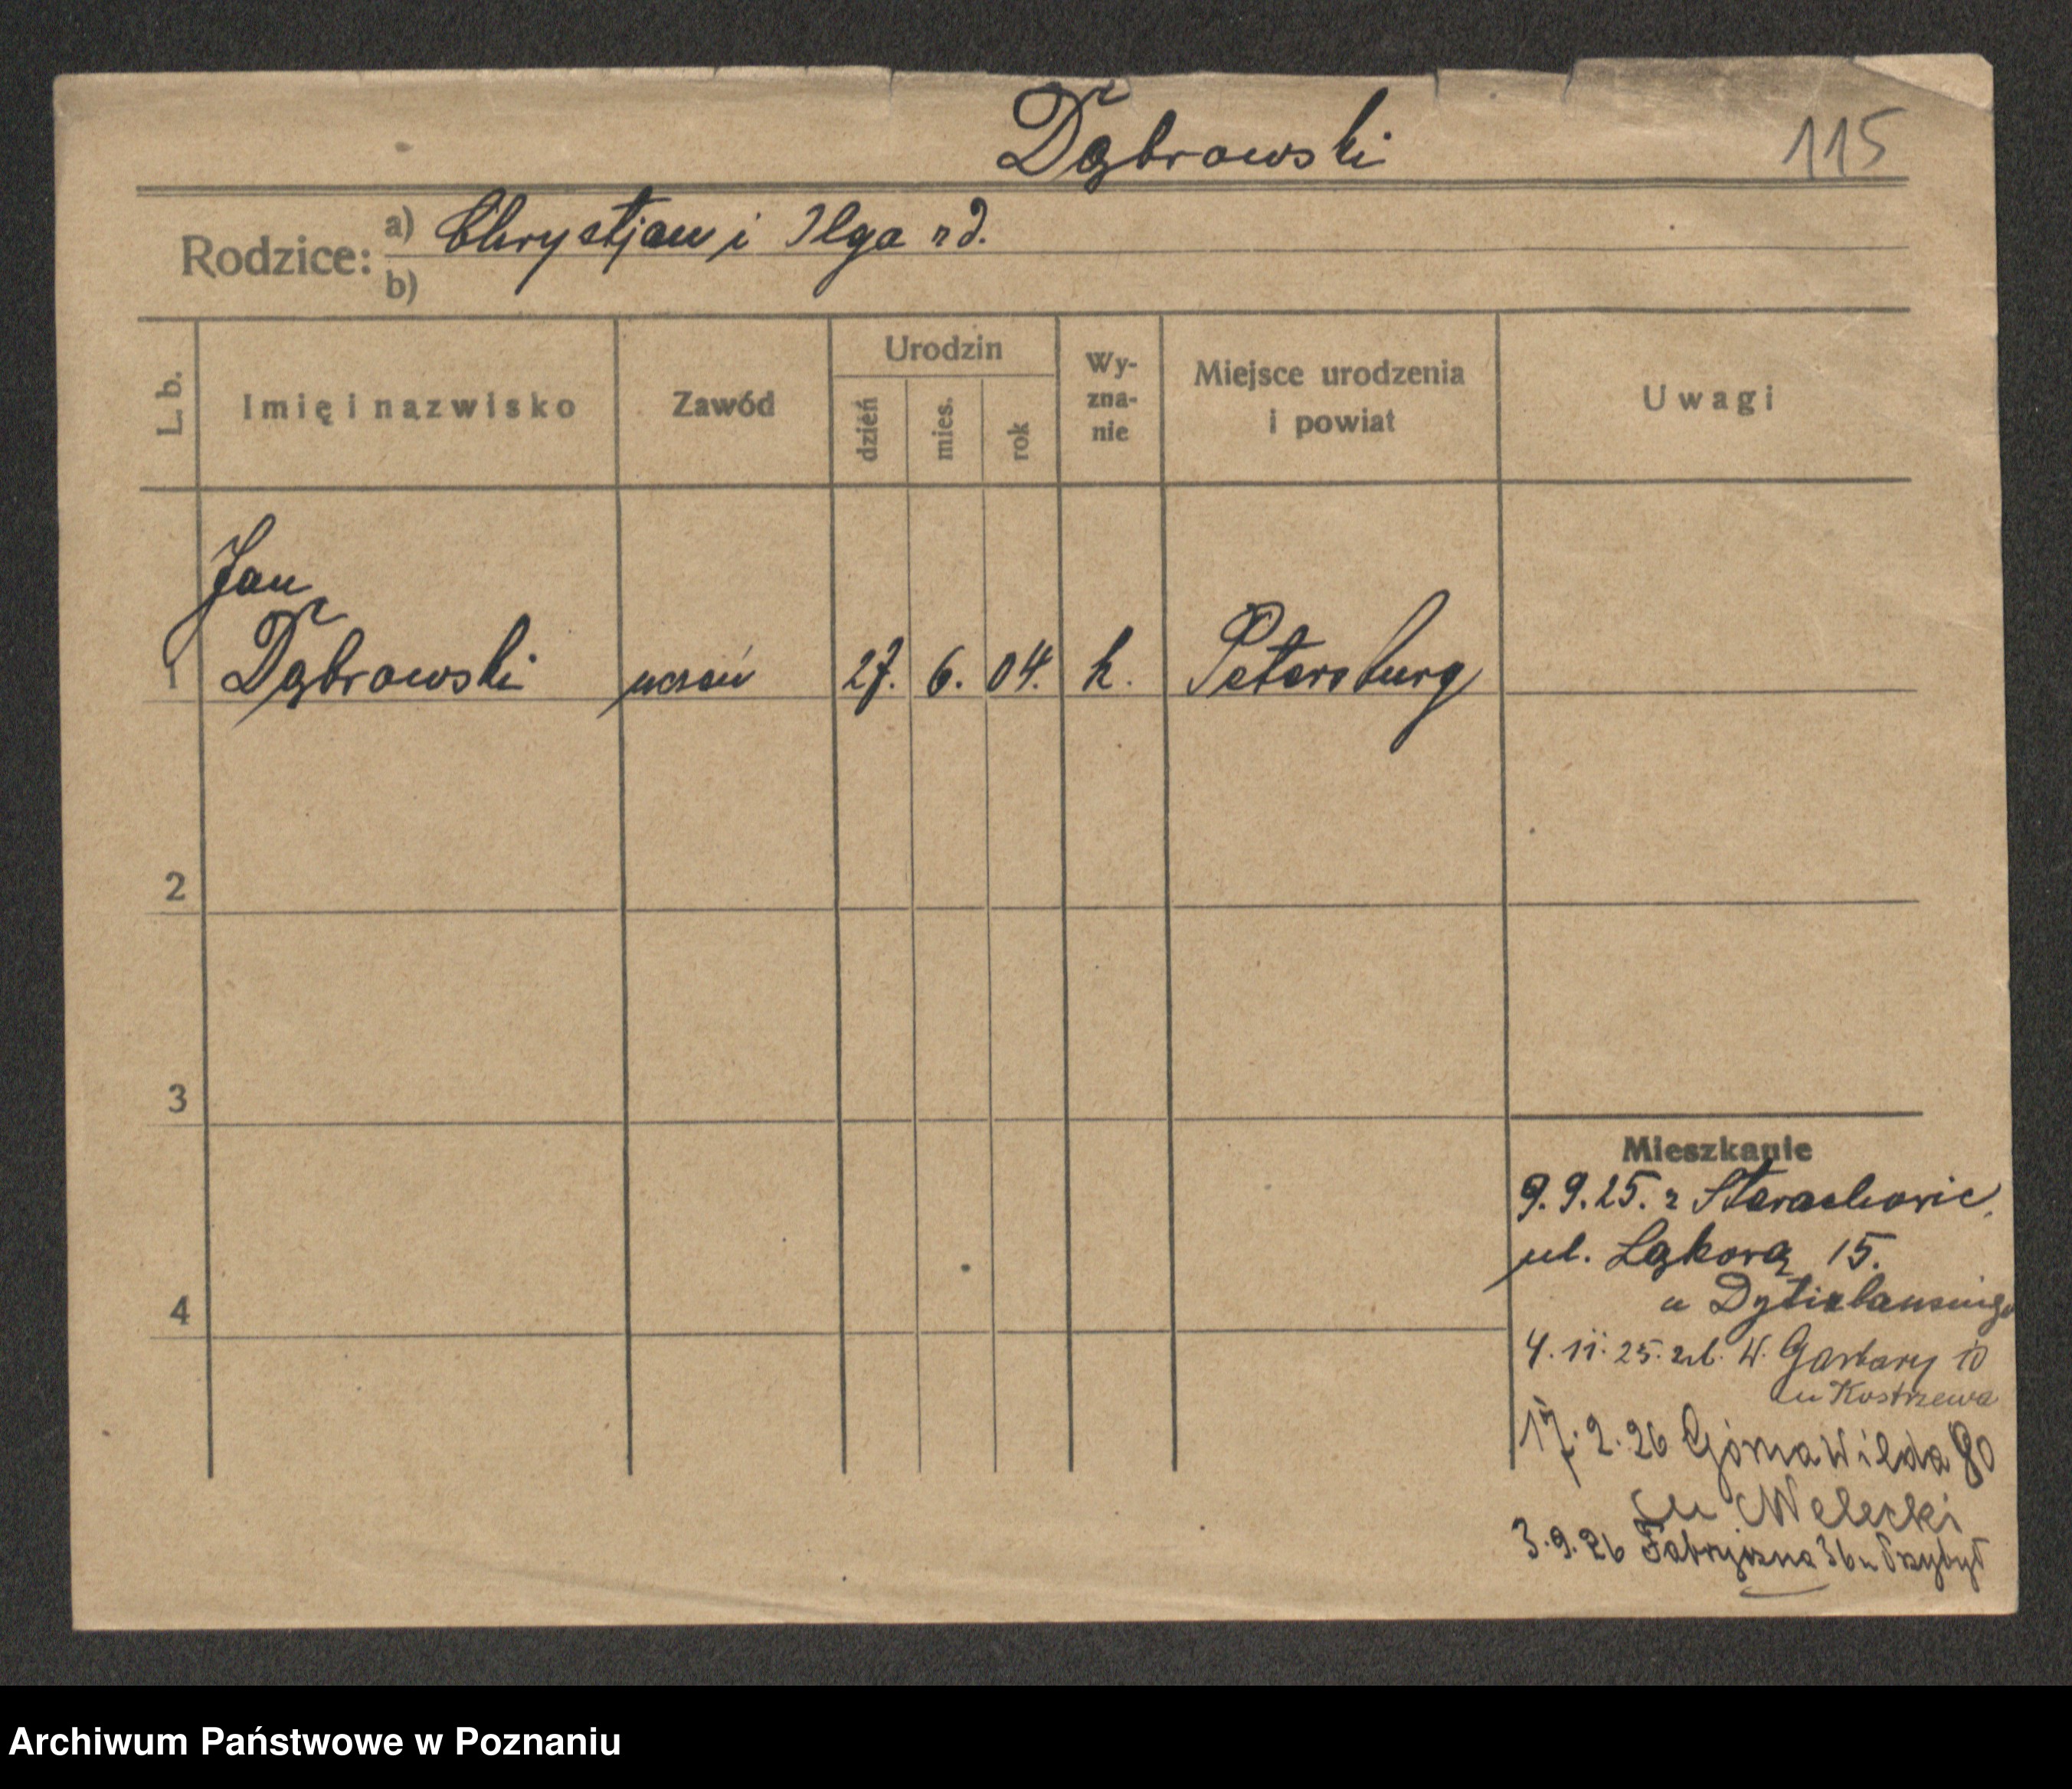 Dąbrowski
115
Rodzice: a) Chrystjan i Ilga zd.
b)
L. b.
Imię i nazwisko
Zawód
Urodzin
dzień
mies.
rok
Wy-
zna-
nie
Miejsce urodzenia
i powiat
Uwagi
Jan
1 Dąbrowski uczeń 27. 6. 04. k. Petersburg
2
3
4
Mieszkanie
9.9.25. z Starachowic
ul. Łąkową 15.
u
4.11.25. W. Garbary 10
u Kostrzewa
17.2.26 Górna Wilda 80
u Welecki
3.9.26 Fabryczna 36 u Przybył
Archiwum Państwowe w Poznaniu